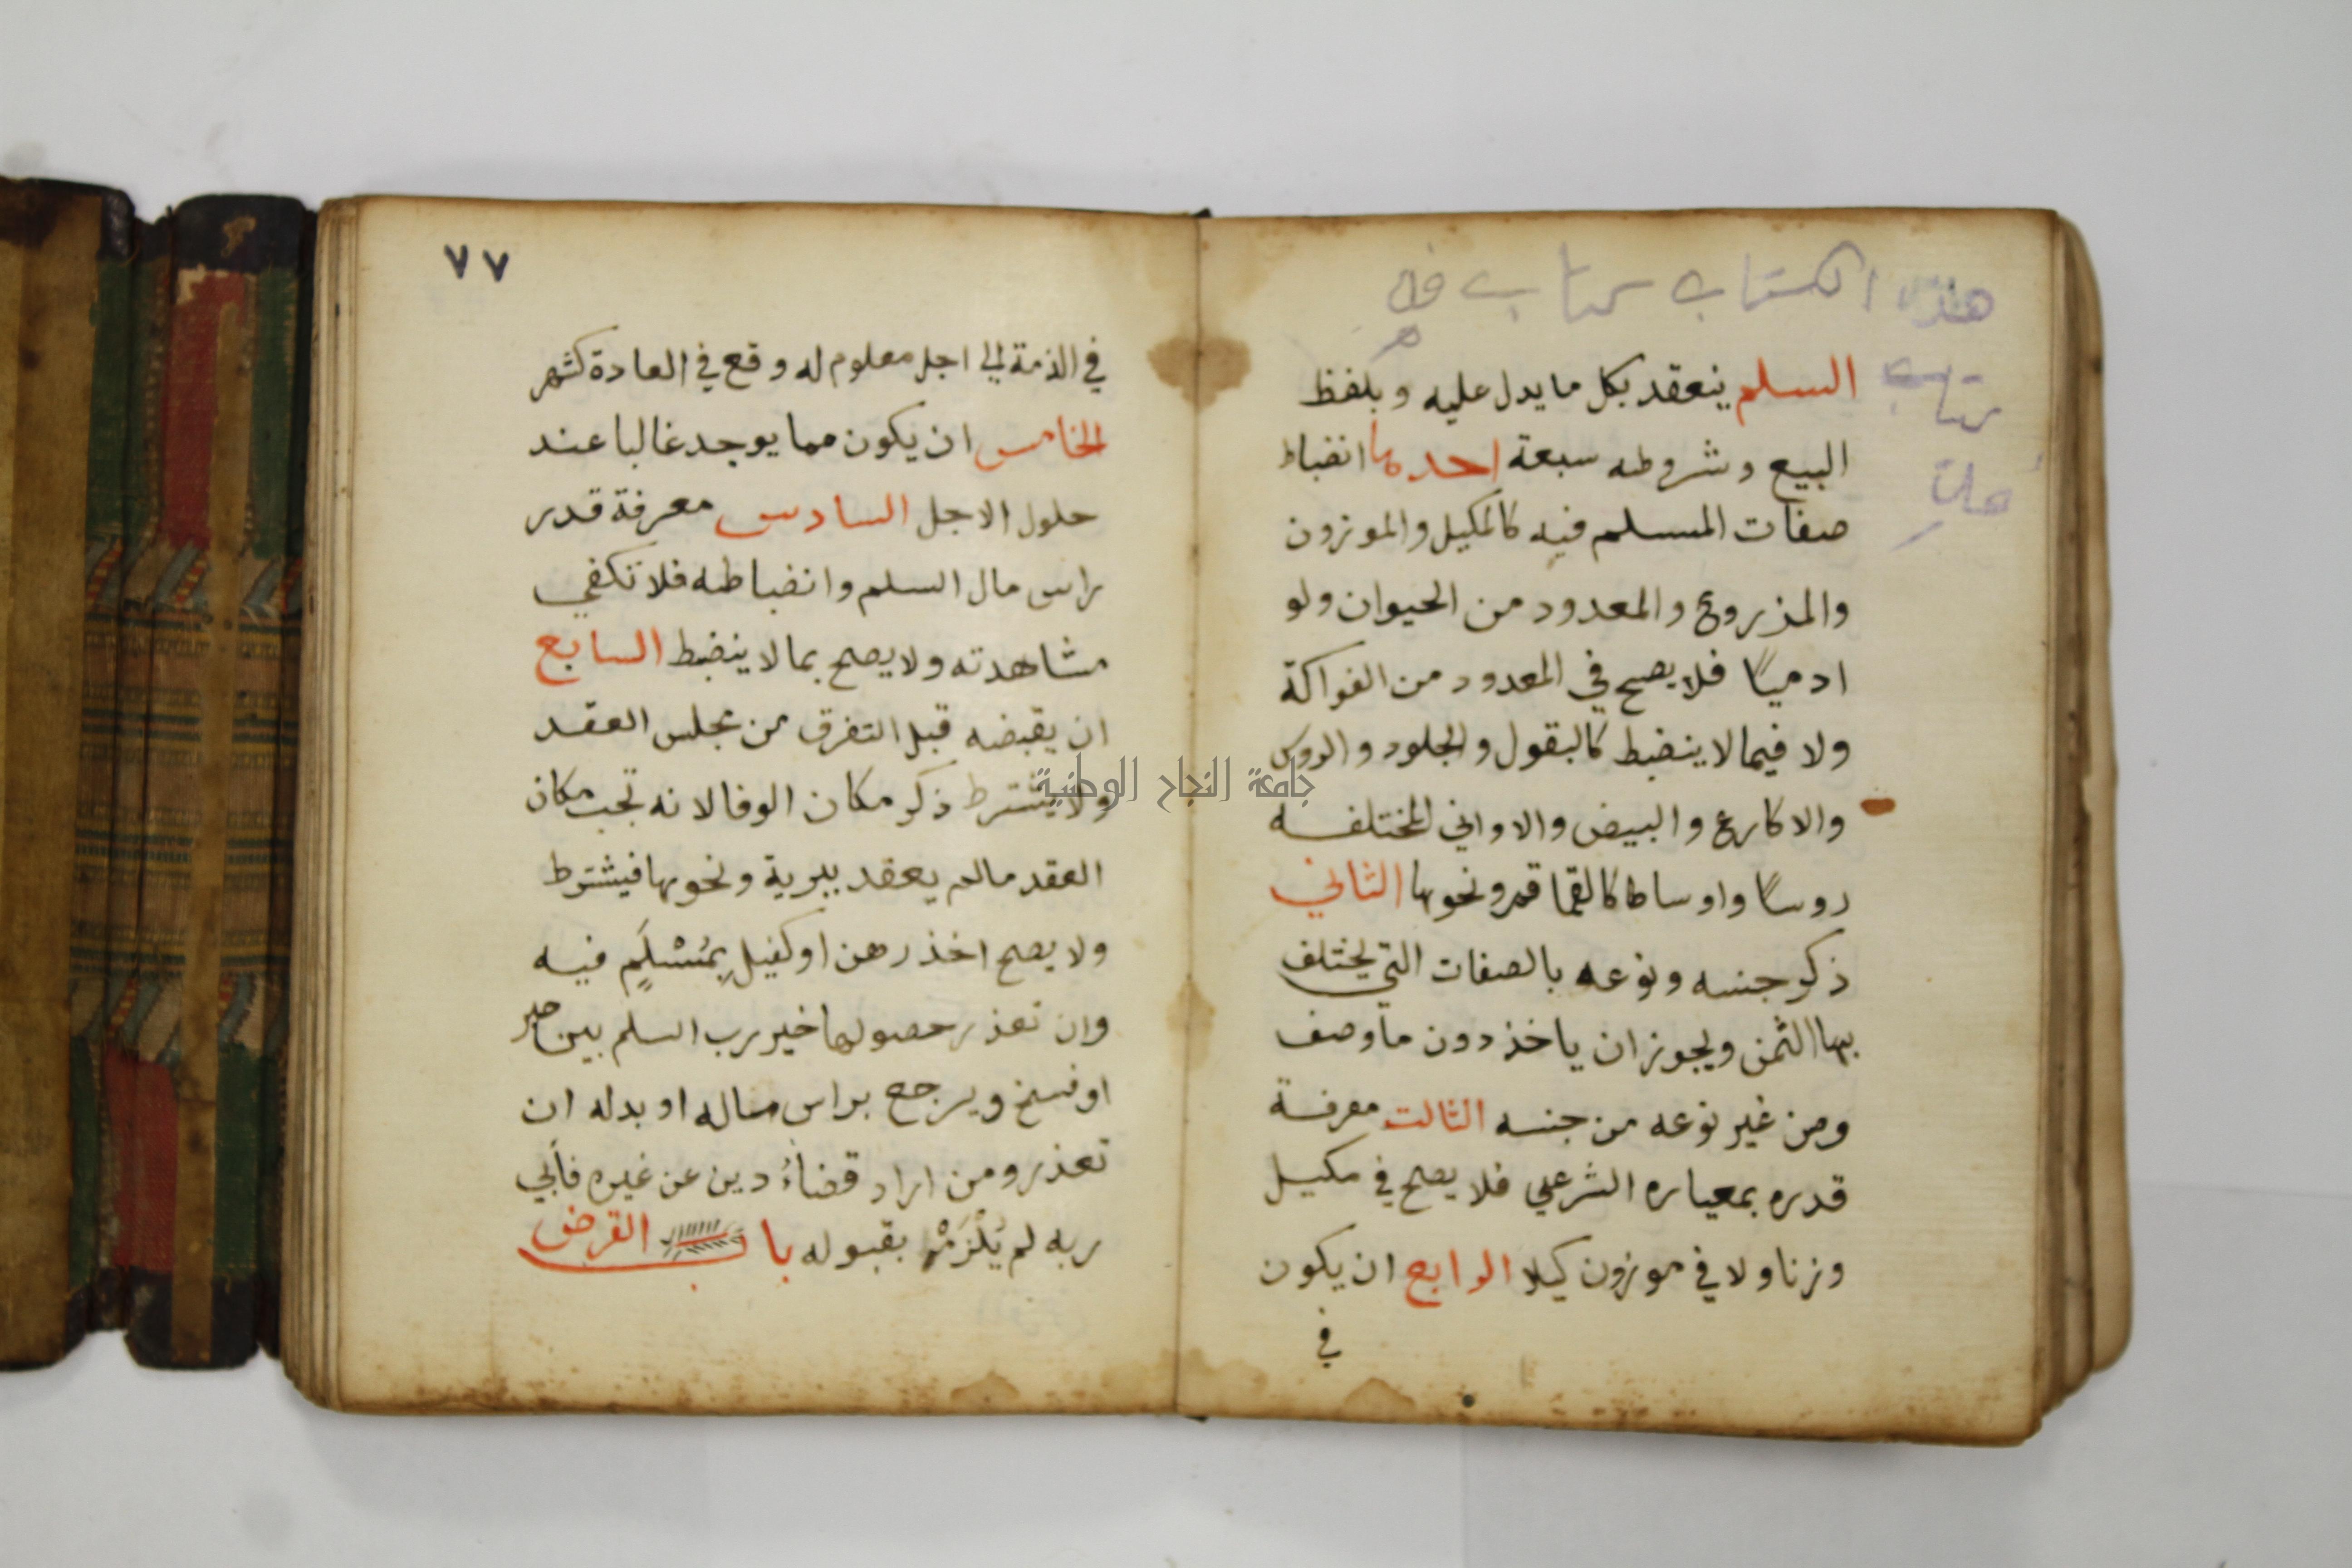 هذا الكتاب كتاب في
السلم ينعقد بكل ما يدل عليه وبلفظ
البيع وشروطه سبعة احدها انضباط
صفات المسلم فيه كالمكيل والموزون
والمذروع والمعدود من الحيوان ولو
ادميًا فلا يصح في المعدود من الفواكة
ولا فيما لا ينضبط كالبقول والجلود والروس
والاكارع والبيض والاواني المختلفه
روسًا واوساطا كالقماقم ونحوها الثاني
ذكر جنسه ونوعه بالصفات التي يختلف
بها الثمن ويجوز ان ياخذ دون ما وصف
ومن غير نوعه من جنسه الثالث معرفة
قدره بمعياره الشرعي فلا يصح في مكيل
وزنا ولا في موزون كيلا الرابع ان يكون
في
كتاب
٧٧
في الذمة الي اجل معلوم له وقع في العادة كشهر
الخامس ان يكون مما يوجد غالبا عند
حلول الاجل السادس معرفة قدر
راس مال السلم وانضباطه فلا تكفي
مشاهدته ولا يصح بما لا ينضبط السابع
ان يقبضه قبل التفرق من مجلس العقد
ولا يشترط ذكر مكان الوفا لانه تجب مكان
العقد مالم يعقد ببرية ونحوها فيشترط
ولا يصح اخذ رهن او كفيل بِمُسْلَمٍ فيه
وان تعذر حصولها خير رب السلم بين صبر
او فسخ ويرجع براس ماله او بدله ان
تعذر ومن اراد قضاءُ دين عن غيره فأبي
ربه لم يُلْزَمْ بقبوله باب القرض
جامعة النجاح الوطنية